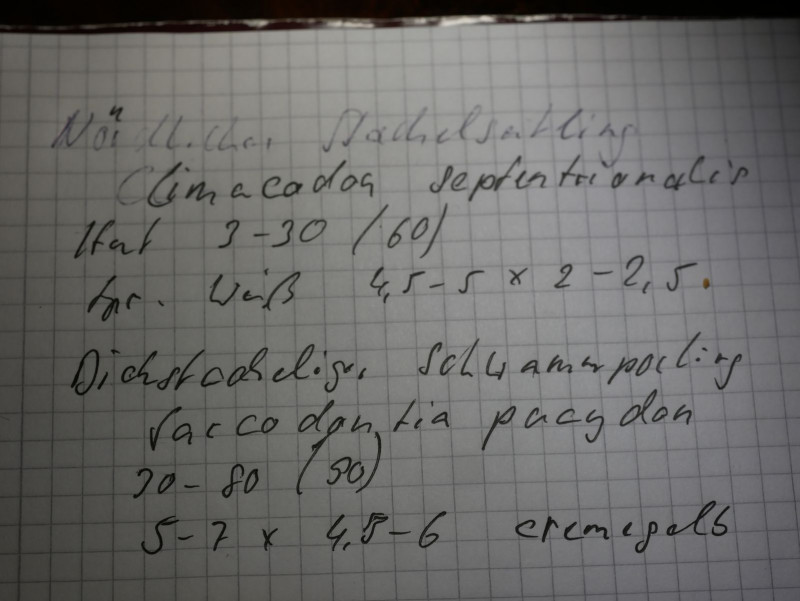 Nördlicher Stachelseitling
Climacodon septentrionalis
Hut 3-30 (60)
Spr. Weiß 4,5-5 x 2-2,5.
Dichstachelige, Schwammporling
Saccodontia pacydon
30-80 (90)
5-7 x 4,5-6 cremegelb